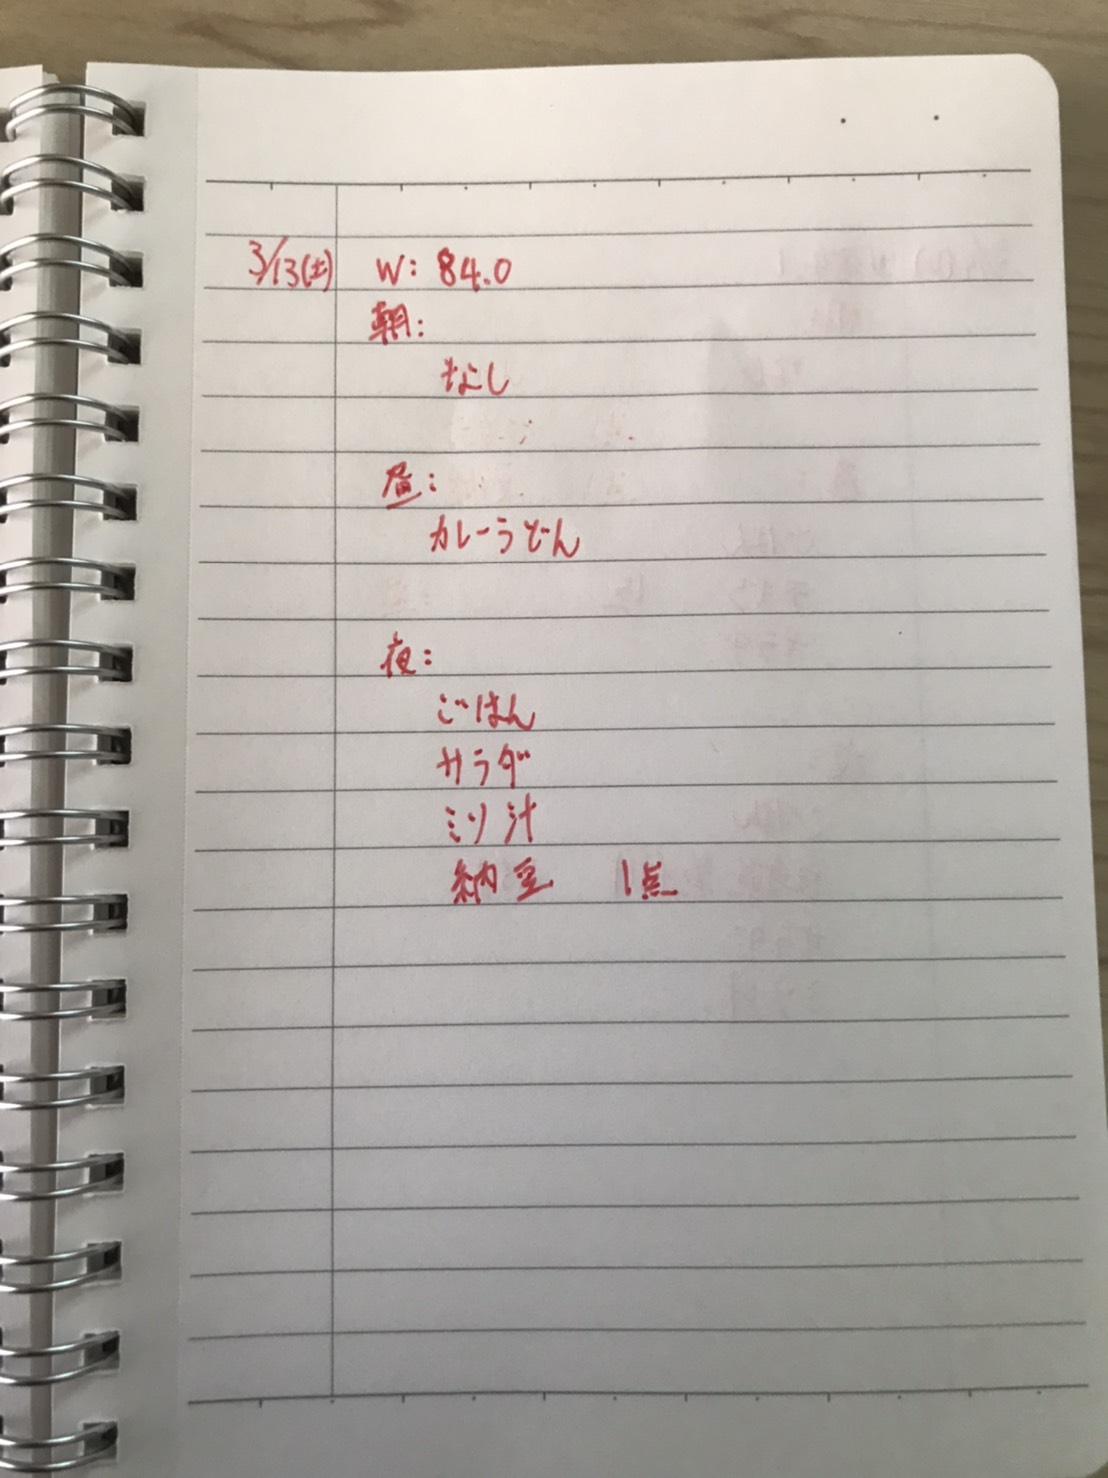 3/13(土) W: 84.0
朝:
なし
昼:
カレーうどん
夜:
ごはん
サラダ
ミソ汁
納豆 1点